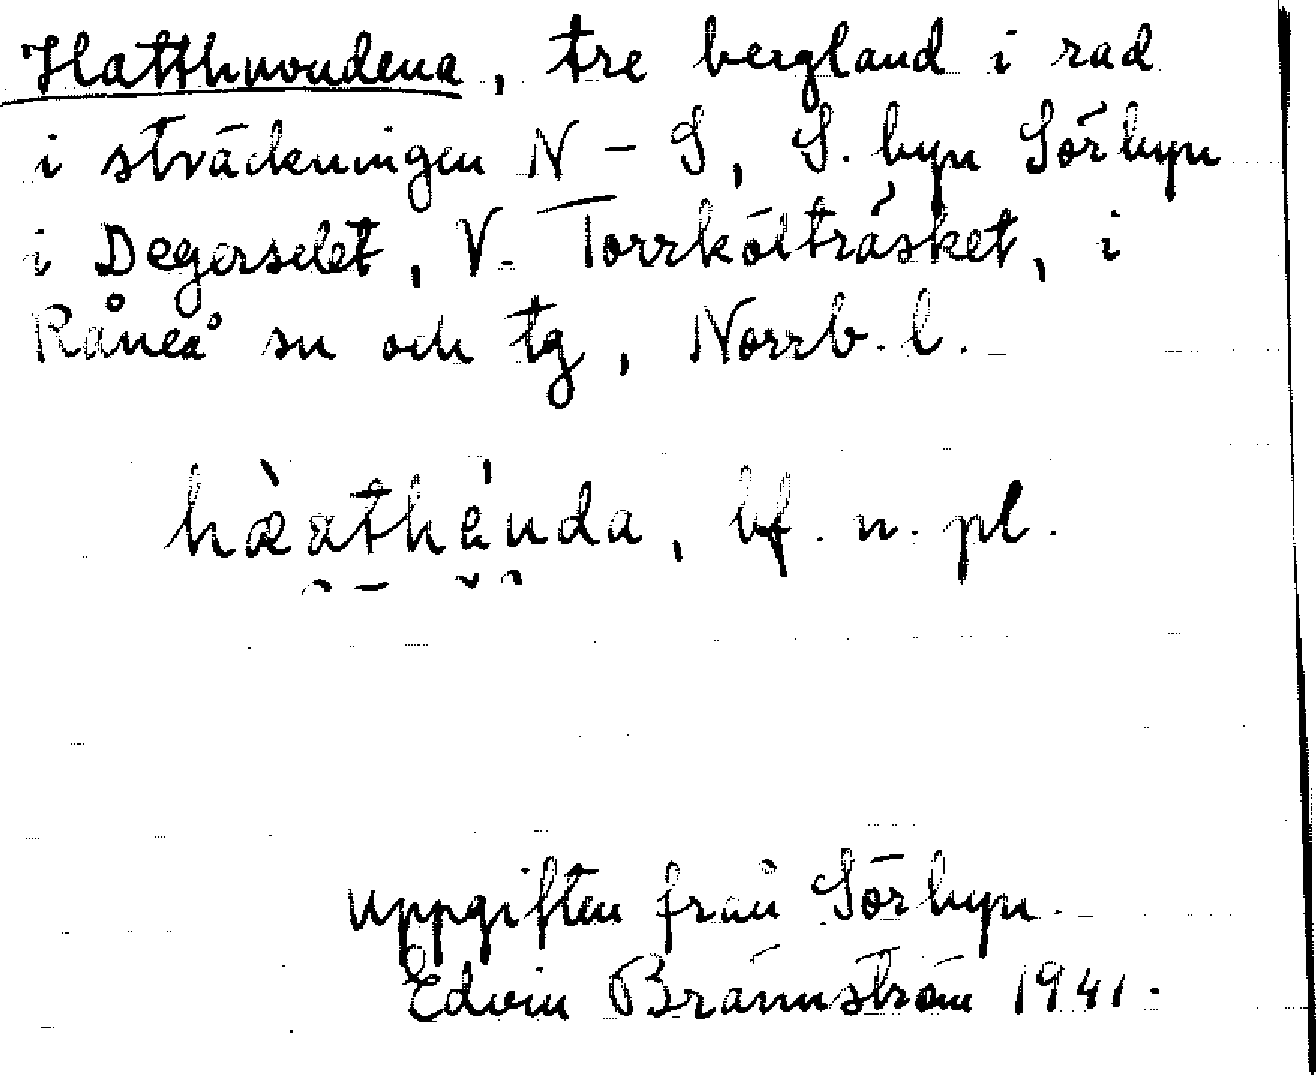 Hatthuvudena, tre bergland i rad
i sträckningen N – S, S. byn Sörbyn
i Degerselet, V. Torrkölträsket, i
Råneå sn och tg, Norrb. l.
bf. n. pl.
uppgiften från Sörbyn.
Edvin Brännström 1941.